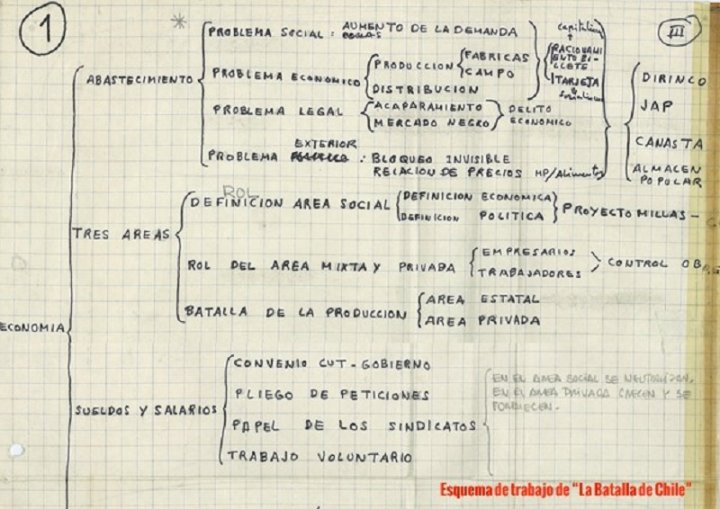 1
*
III
PROBLEMA SOCIAL : AUMENTO DE LA DEMANDA
PROBLEMA ECONOMICO
PRODUCCION
FABRICAS
CAMPO
DISTRIBUCION
capitalismo
RACIONAMI
ENTO BI-
LLETE
TARJETA
ABASTECIMIENTO
PROBLEMA LEGAL
ACAPARAMIENTO
MERCADO NEGRO
DELITO
ECONOMICO
PROBLEMA EXTERIOR : BLOQUEO INVISIBLE
RELACION DE PRECIOS MP/Alimentos
DIRINCO
JAP
CANASTA
ALMACEN
POPULAR
ROL
DEFINICION AREA SOCIAL
DEFINICION ECONOMICA
DEFINICION POLITICA
PROYECTO MILLAS -
TRES AREAS
ROL DEL AREA MIXTA Y PRIVADA
EMPRESARIOS
TRABAJADORES
CONTROL OB
BATALLA DE LA PRODUCCION
AREA ESTATAL
AREA PRIVADA
ECONOMIA
SUELDOS Y SALARIOS
CONVENIO CUT - GOBIERNO
PLIEGO DE PETICIONES
PAPEL DE LOS SINDICATOS
TRABAJO VOLUNTARIO
EN EL AREA SOCIAL SE NEUTRALIZAN,
EN EL AREA PRIVADA CRECEN Y SE
FORTALECEN.
Esquema de trabajo de "La Batalla de Chile"